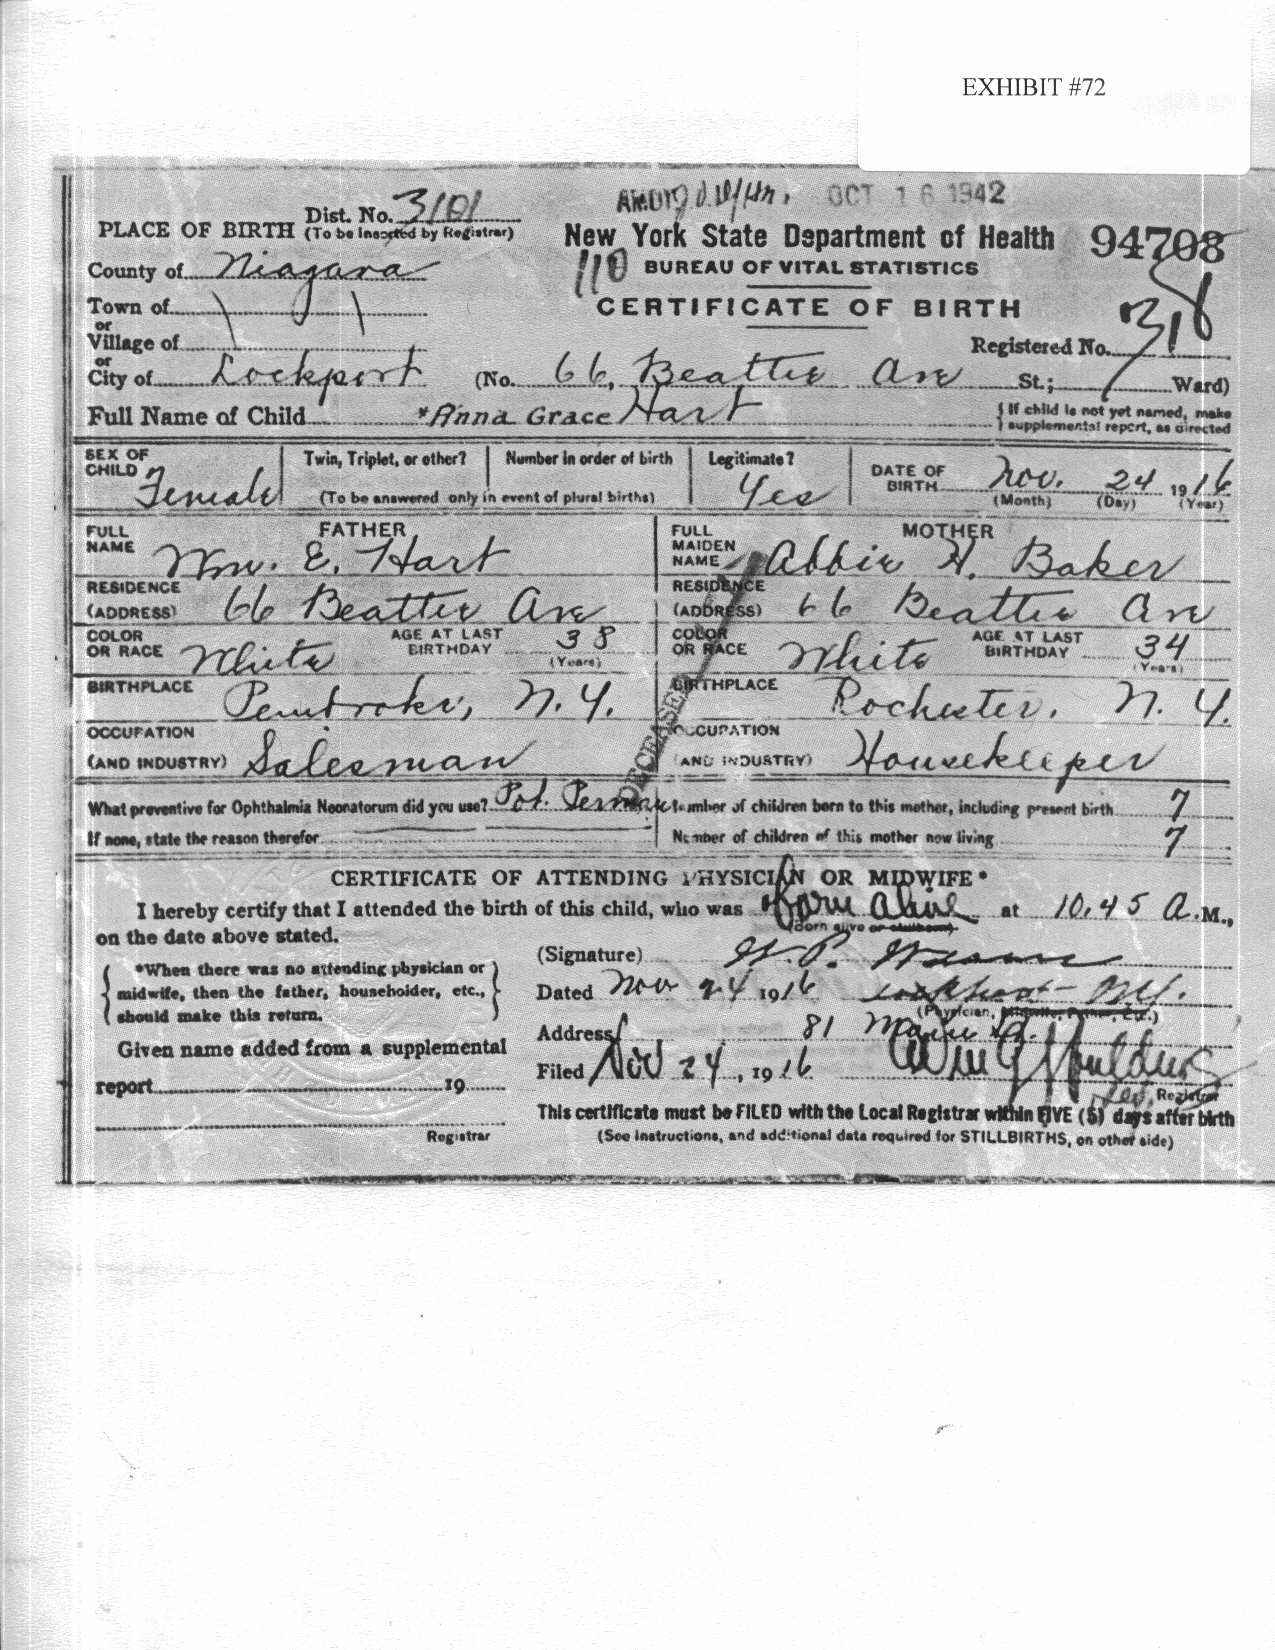 EXHIBIT #72
OCT 16 1942
PLACE OF BIRTH Dist. No. 3101 (To be Inserted by Registrar)
New York State Department of Health 94708
County of Niagara
110 BUREAU OF VITAL STATISTICS
Town of
CERTIFICATE OF BIRTH
or
Village of
Registered No. 318
or
City of Lockport (No. 66, Beattie Ave St.; Ward)
Full Name of Child *Anna Grace Hart { If child is not yet named, make supplemental report, as directed
SEX OF CHILD Female
Twin, Triplet, or other? Number in order of birth
(To be answered only in event of plural births)
Legitimate? Yes
DATE OF BIRTH Nov. 24 1916
(Month) (Day) (Year)
FATHER
FULL NAME Wm. E. Hart
MOTHER
FULL MAIDEN NAME Abbie H. Baker
RESIDENCE (ADDRESS) 66 Beattie Ave
RESIDENCE (ADDRESS) 66 Beattie Ave
COLOR OR RACE White AGE AT LAST BIRTHDAY 38 (Years)
COLOR OR RACE White AGE AT LAST BIRTHDAY 34 (Years)
BIRTHPLACE Pembroke, N. Y.
BIRTHPLACE Rochester, N. Y.
OCCUPATION (AND INDUSTRY) Salesman
OCCUPATION (AND INDUSTRY) Housekeeper
DECEASED
What preventive for Ophthalmia Neonatorum did you use? Pot. Perman
Number of children born to this mother, including present birth 7
If none, state the reason therefor
Number of children of this mother now living 7
CERTIFICATE OF ATTENDING PHYSICIAN OR MIDWIFE*
I hereby certify that I attended the birth of this child, who was Born Alive at 10.45 A.M.,
(born alive or stillborn)
on the date above stated.
(Signature) W. P.
{ *When there was no attending physician or midwife, then the father, householder, etc., should make this return. }
Dated Nov 24 1916 Lockport NY.
(Physician, Midwife, Father, Etc.)
Given name added from a supplemental
Address 81 Main St.
report 19
Filed Nov 24, 1916
Registrar
This certificate must be FILED with the Local Registrar within FIVE (5) days after birth
Registrar
(See Instructions, and additional data required for STILLBIRTHS, on other side)